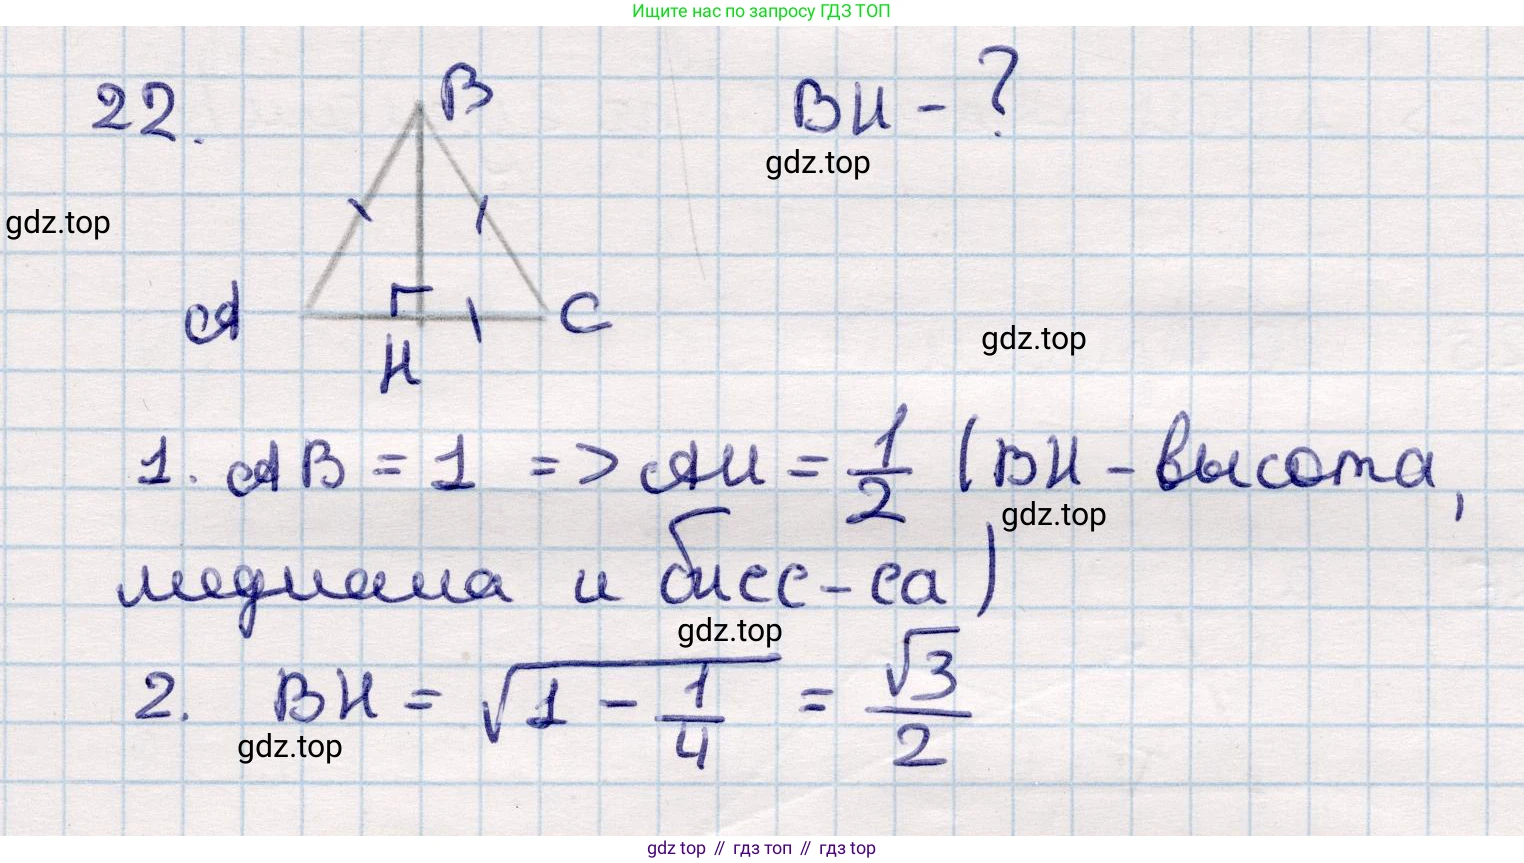 Ищите нас по запросу ГДЗ ТОП
22.
B
BH - ?
gdz.top
gdz.top
A
C
H
gdz.top
1. AB = 1 => AH = 1/2 (BH - высота,
gdz.top
медиана и бисс-са)
gdz.top
2. BH = √(1 - 1/4) = √3/2
gdz.top
gdz top // гдз топ // гдз top